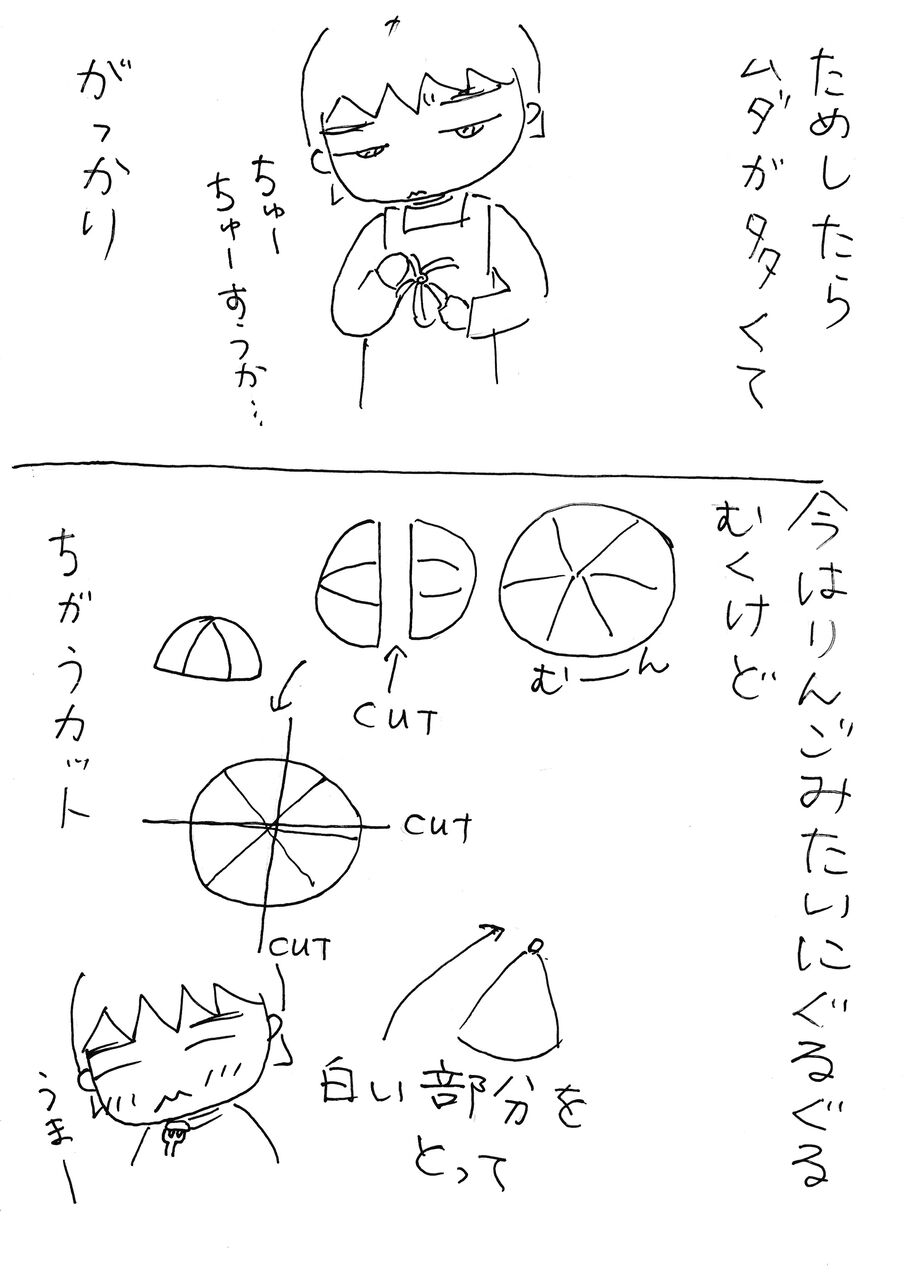 ためしたら
ムダが多くて
ちゅー
ちゅーすうか…
がっかり
今はりんごみたいにぐるぐる
むくけど
むーん
CUT
CUT
CUT
ちがうカット
白い部分を
とって
うまー